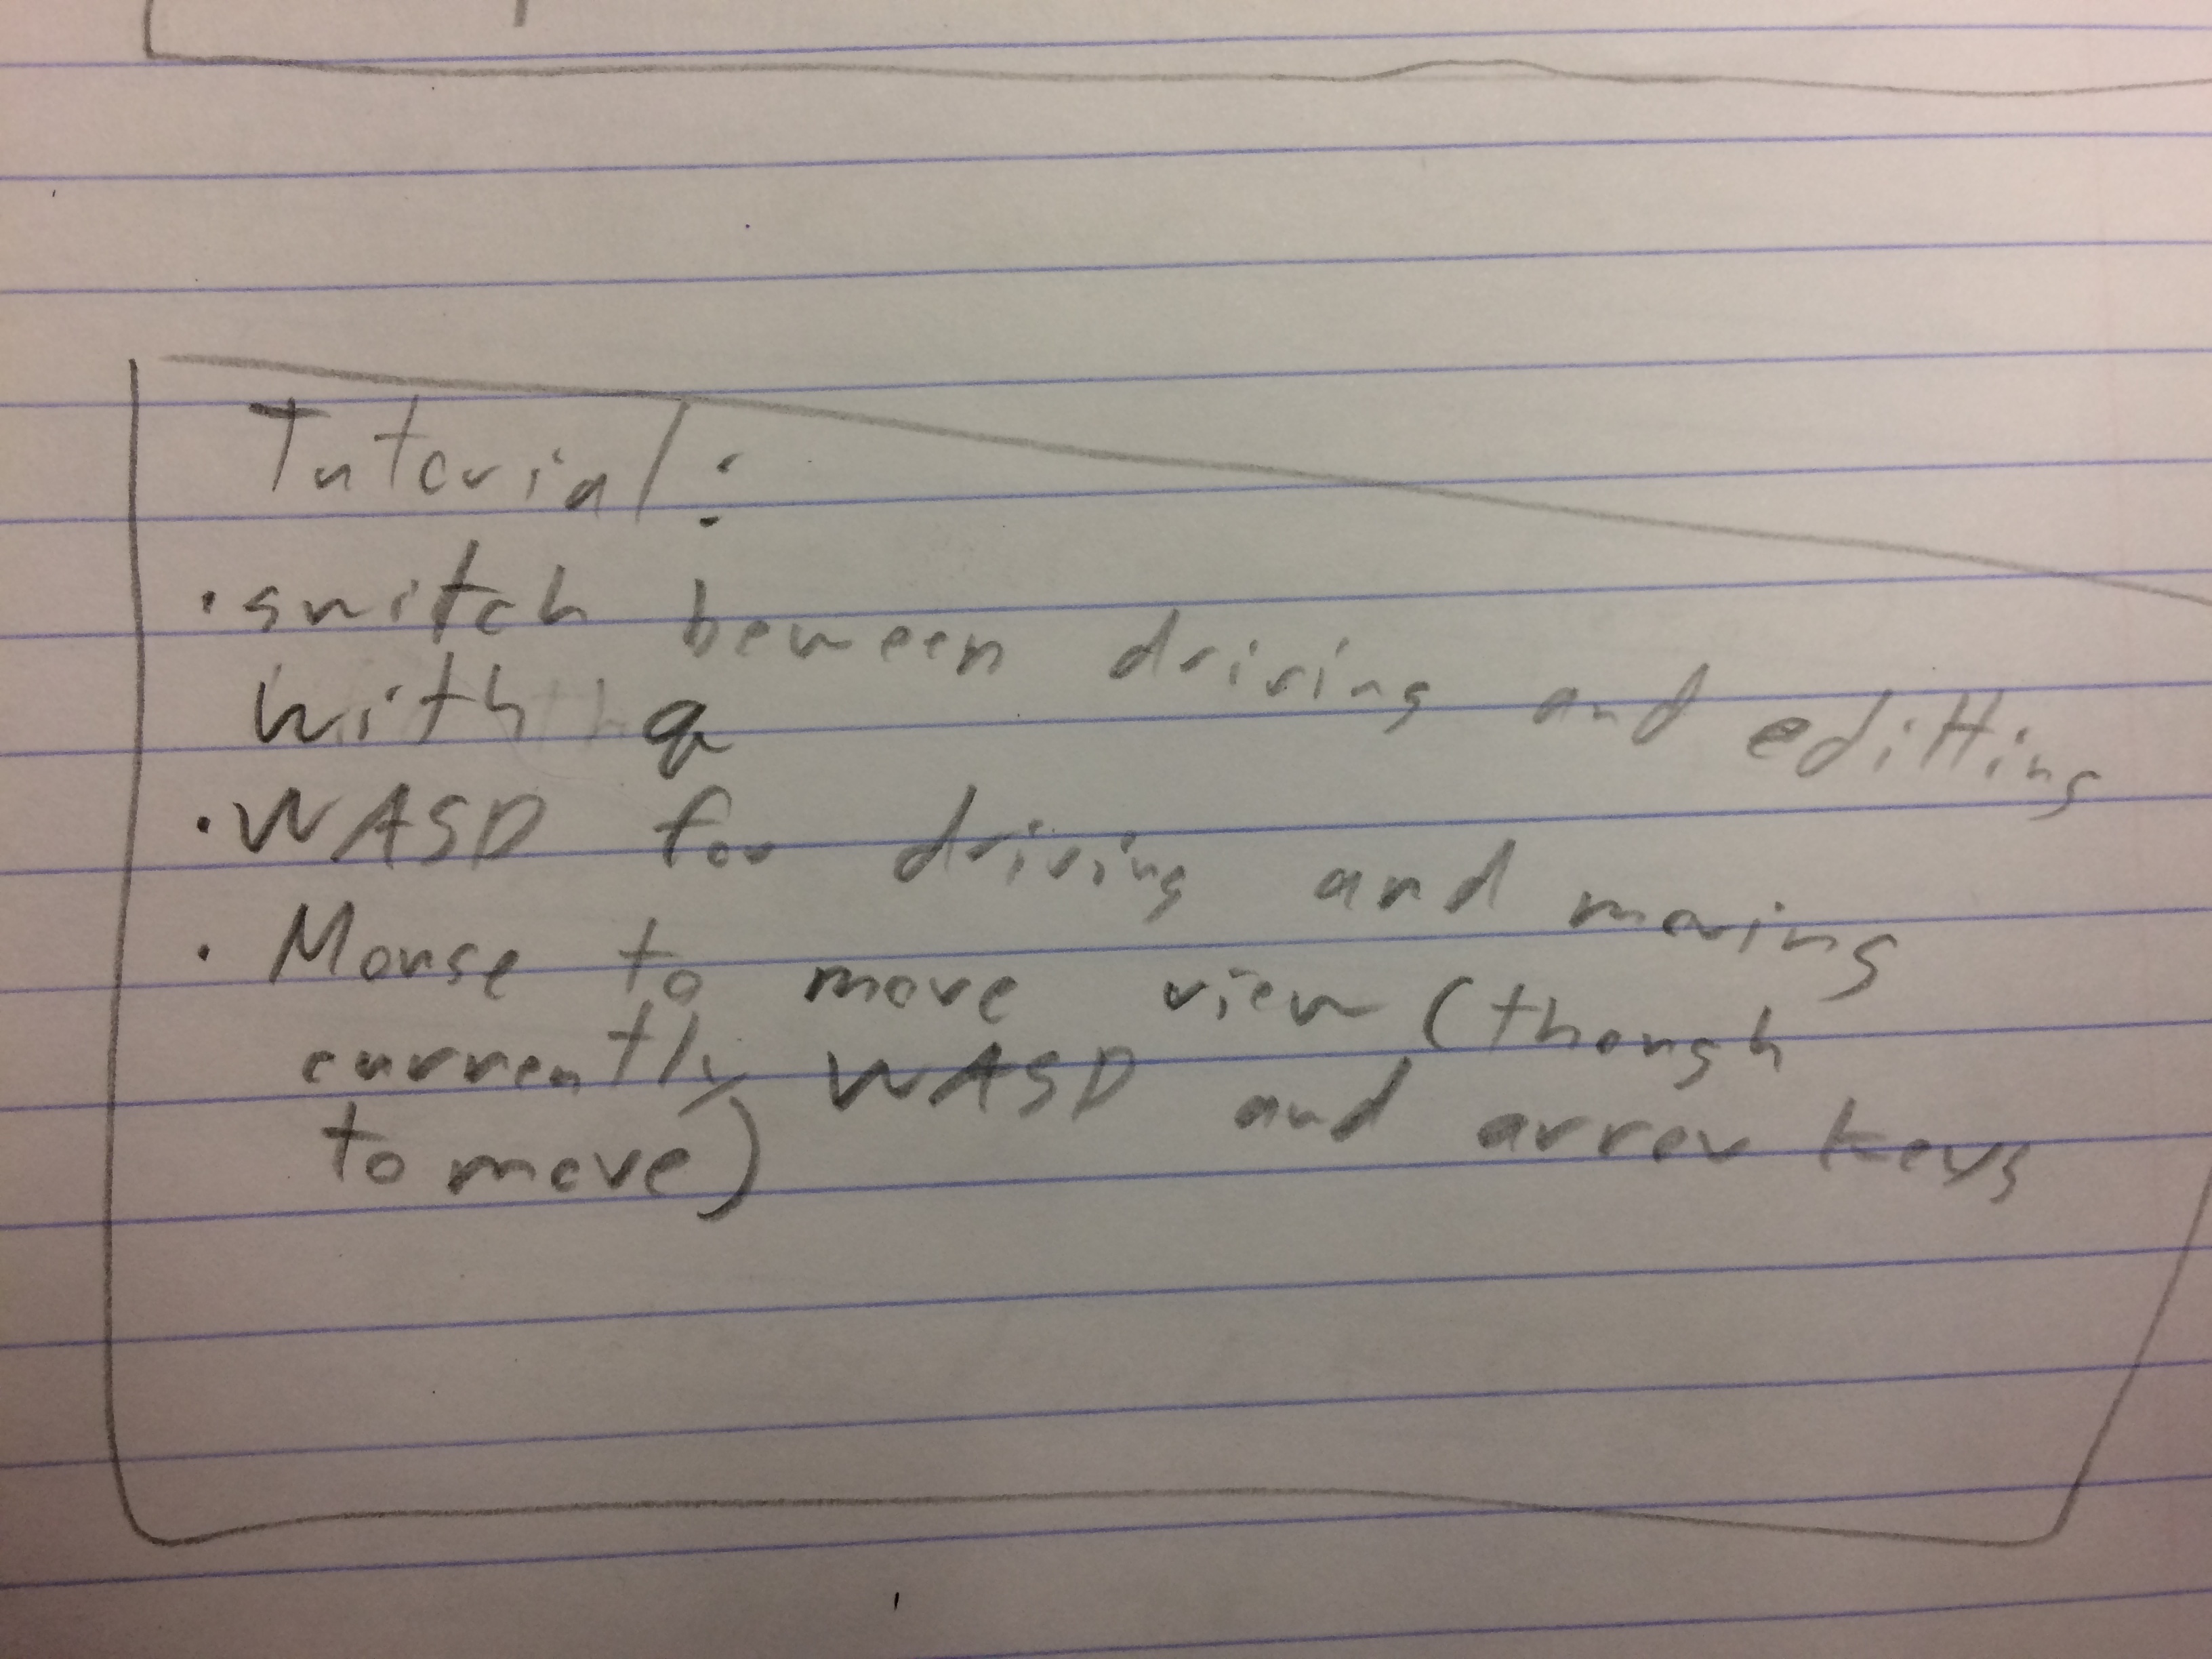 Tutorial:
• switch beween driving and editting
with q
• WASD for driving and moving
• Mouse to move view (though
currently WASD and arrow keys
to move)